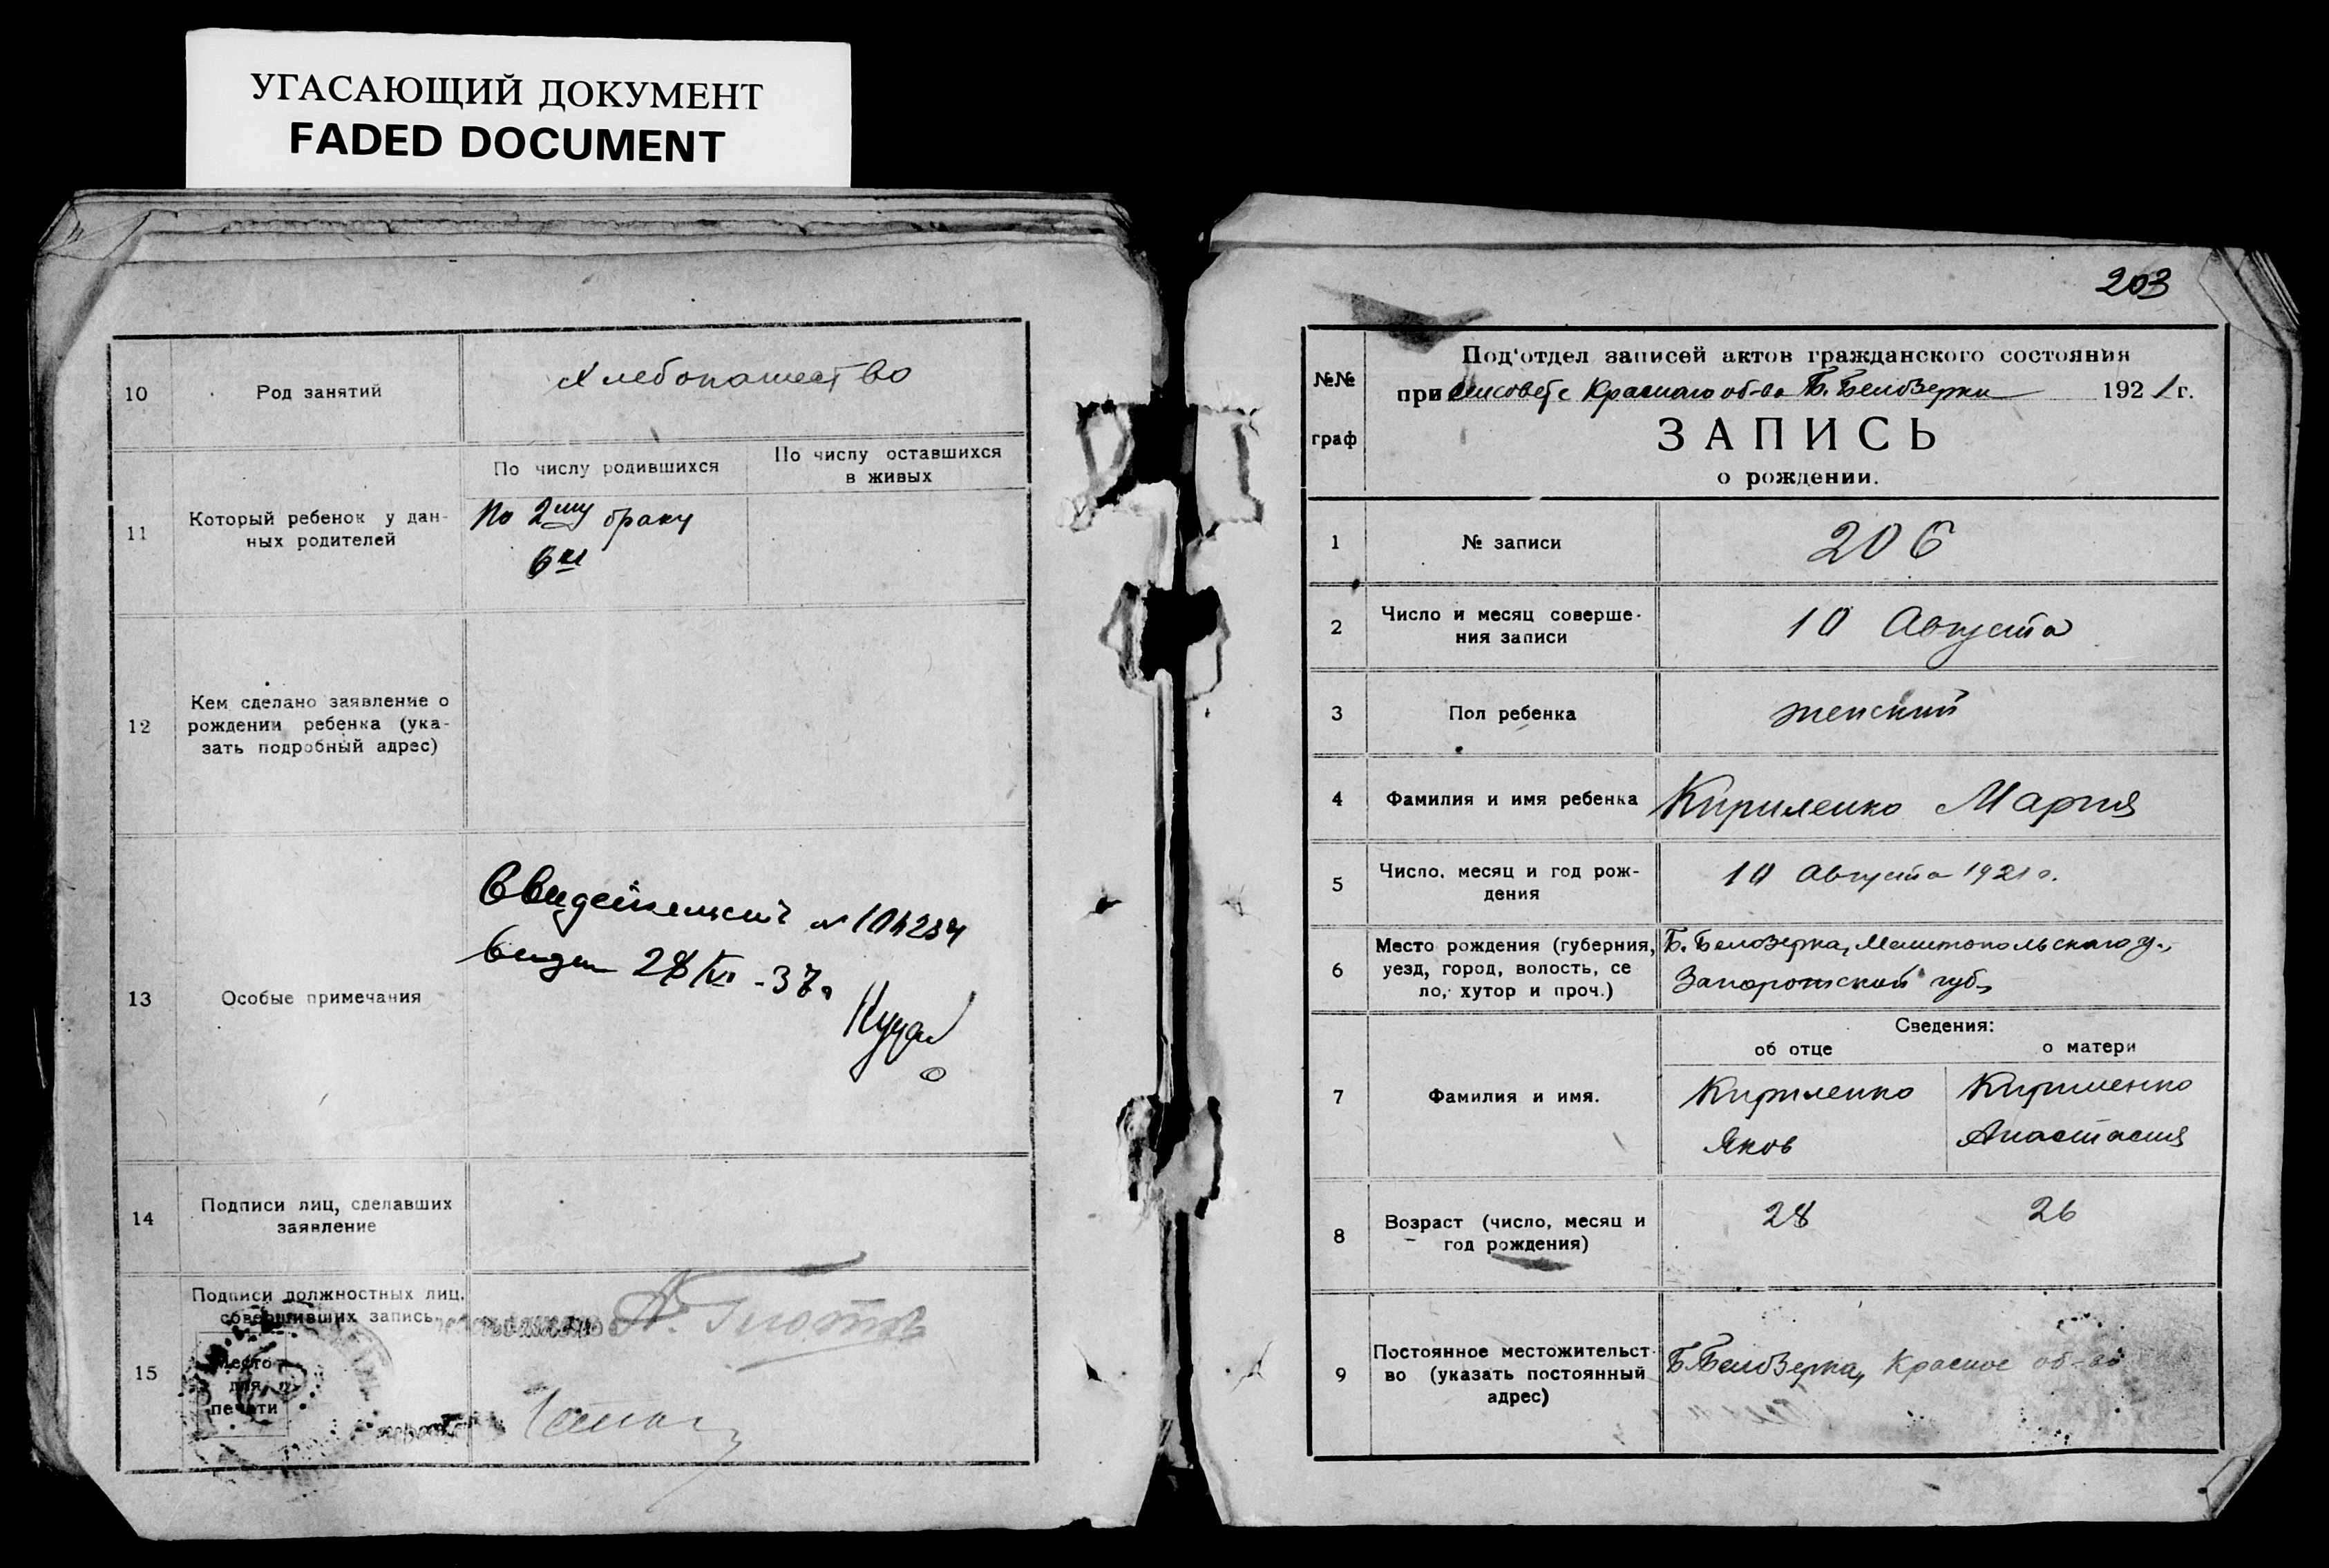 УГАСАЮЩИЙ ДОКУМЕНТ
FADED DOCUMENT
10
Род занятий
Хлебопашество
11
Который ребенок у дан-
ных родителей
По числу родившихся
По числу оставшихся
в живых
По 2му браку
6й
12
Кем сделано заявление о
рождении ребенка (ука-
зать подробный адрес)
13
Особые примечания
14
Подписи лиц, сделавших
заявление
15
Подписи должностных лиц,
совершивших запись
Место
для
печати
203
№№
граф
Под'отдел записей актов гражданского состояния
при сельсовете Красного об-ва Б. Белозерки 1921 г.
ЗАПИСЬ
о рождении.
1
№ записи
206
2
Число и месяц соверше-
ния записи
10 Августа
3
Пол ребенка
женский
4
Фамилия и имя ребенка
Кириленко Мария
5
Число, месяц и год рож-
дения
10 Августа 1921 г.
6
Место рождения (губерния,
уезд, город, волость, се
ло, хутор и проч.)
Б. Белозерка, Мелитопольского у.,
Запорожской губ.
Сведения:
об отце
о матери
7
Фамилия и имя.
Кириленко
Яков
Кириленко
Анастасия
8
Возраст (число, месяц и
год рождения)
28
26
9
Постоянное местожительст-
во (указать постоянный
адрес)
Б. Белозерка, Красное об-во